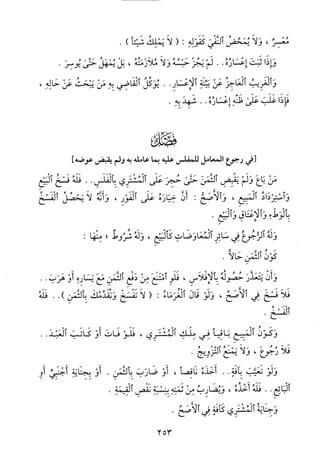 مُعْسِرٌ ، وَلَا يُمَحِّضُ ٱلنَّفْيَ كَقَوْلِهِ : ( لَا يَمْلِكُ شَيْئاً ) .
وَإِذَا ثَبَتَ إِعْسَارُهُ . . لَمْ يَجُزْ حَبْسُهُ وَلَا مُلَازَمَتُهُ ، بَلْ يُمْهَلُ حَتَّىٰ يُوسِرَ .
وَٱلْغَرِيبُ ٱلْعَاجِزُ عَنْ بَيِّنَةِ ٱلْإِعْسَارِ . . يُوَكِّلُ ٱلْقَاضِي بِهِ مَنْ يَبْحَثُ عَنْ حَالِهِ ،
فَإِذَا غَلَبَ عَلَىٰ ظَنِّهِ إِعْسَارُهُ . . شَهِدَ بِهِ .
فَصْلٌ
[في رجوع المعامل للمفلس عليه بما عامله به ولم يقبض عوضه]
مَنْ بَاعَ وَلَمْ يَقْبِضِ ٱلثَّمَنَ حَتَّىٰ حُجِرَ عَلَى ٱلْمُشْتَرِي بِٱلْفَلَسِ . . فَلَهُ فَسْخُ ٱلْبَيْعِ
وَٱسْتِرْدَادُ ٱلْمَبِيعِ ، وَٱلْأَصَحُّ : أَنَّ خِيَارَهُ عَلَى ٱلْفَوْرِ ، وَأَنَّهُ لَا يَحْصُلُ ٱلْفَسْخُ
بِٱلْوَطْءِ وَٱلْإِعْتَاقِ وَٱلْبَيْعِ .
وَلَهُ ٱلرُّجُوعُ فِي سَائِرِ ٱلْمُعَاوَضَاتِ كَٱلْبَيْعِ ، وَلَهُ شُرُوطٌ ؛ مِنْهَا :
كَوْنُ ٱلثَّمَنِ حَالّاً .
وَأَنْ يَتَعَذَّرَ حُصُولُهُ بِٱلْإِفْلَاسِ ، فَلَوِ ٱمْتَنَعَ مِنْ دَفْعِ ٱلثَّمَنِ مَعَ يَسَارِهِ أَوْ هَرَبَ . .
فَلَا فَسْخَ فِي ٱلْأَصَحِّ ، وَلَوْ قَالَ ٱلْغُرَمَاءُ : ( لَا تَفْسَخْ وَنُقَدِّمُكَ بِٱلثَّمَنِ ) . . فَلَهُ
ٱلْفَسْخُ .
وَكَوْنُ ٱلْمَبِيعِ بَاقِياً فِي مِلْكِ ٱلْمُشْتَرِي ، فَلَوْ فَاتَ أَوْ كَاتَبَ ٱلْعَبْدَ . .
فَلَا رُجُوعَ ، وَلَا يَمْنَعُ ٱلتَّزْوِيجُ .
وَلَوْ تَعَيَّبَ بِآفَةٍ . . أَخَذَهُ نَاقِصاً ، أَوْ ضَارَبَ بِٱلثَّمَنِ . أَوْ بِجِنَايَةِ أَجْنَبِيٍّ أَوِ
ٱلْبَائِعِ . . فَلَهُ أَخْذُهُ ، وَيُضَارِبُ مِنْ ثَمَنِهِ بِنِسْبَةِ نَقْصِ ٱلْقِيمَةِ .
وَجِنَايَةُ ٱلْمُشْتَرِي كَآفَةٍ فِي ٱلْأَصَحِّ .
٢٥٣